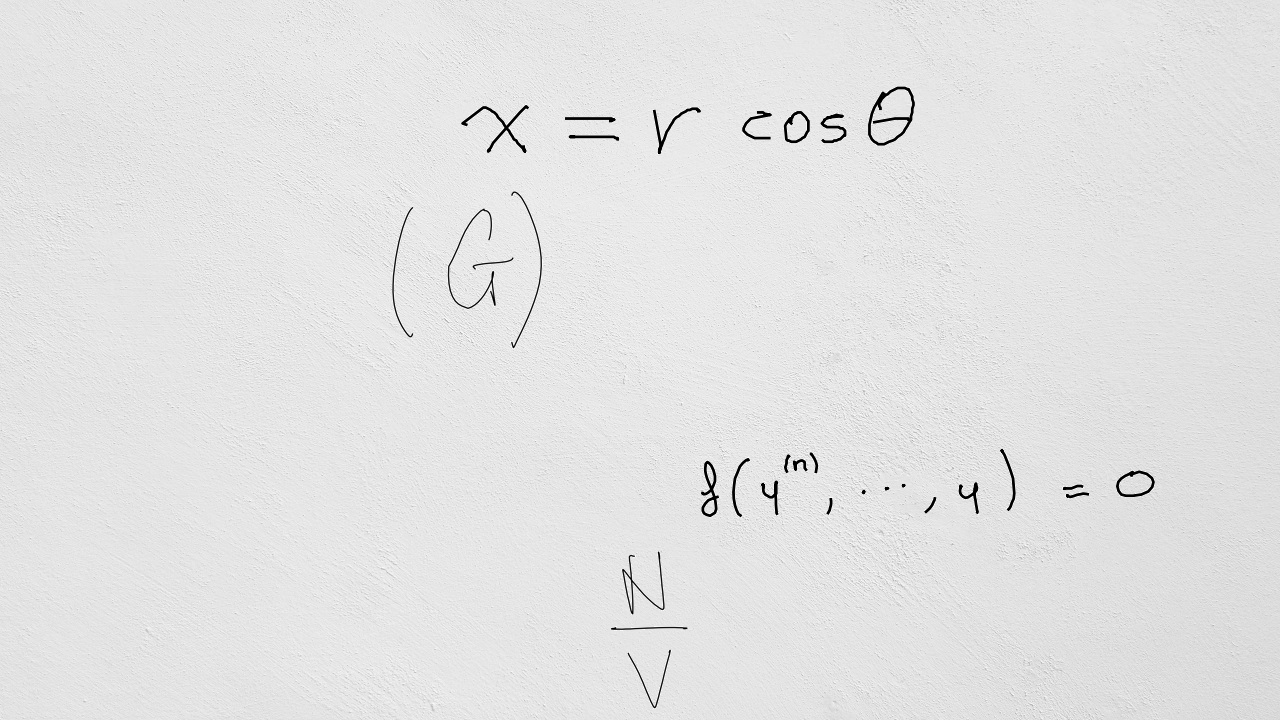 x = r cos θ
(G)
f(y^{(n)}, ⋯, y) = 0
\frac{N}{V}